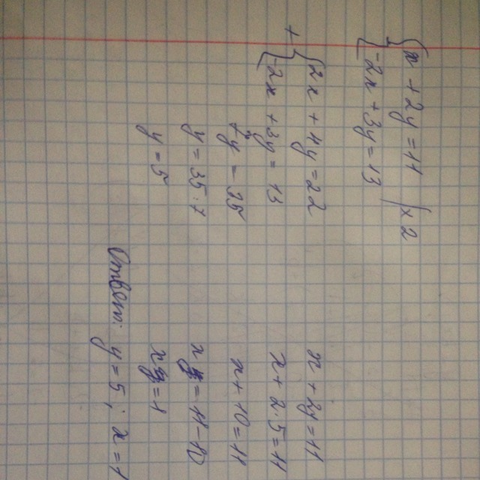 { x + 2y = 11 | × 2
{ -2x + 3y = 13
+ { 2x + 4y = 22
{ -2x + 3y = 13
7y = 35
y = 35 : 7
y = 5
x + 2y = 11
x + 2 · 5 = 11
x + 10 = 11
x = 11 - 10
x = 1
Ответ: y = 5 ; x = 1